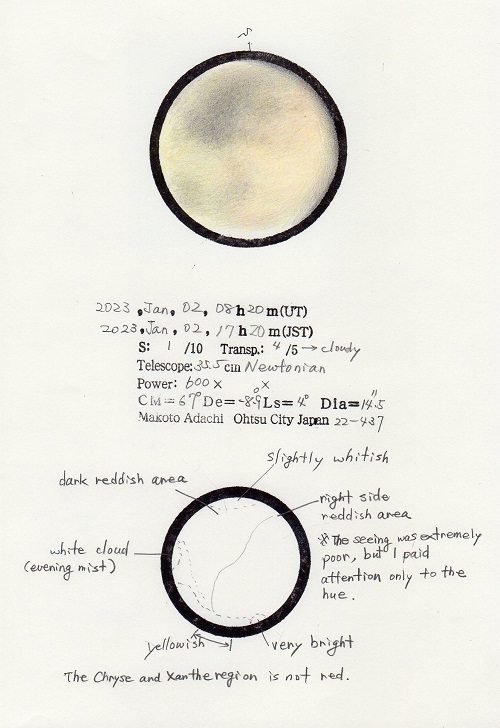 N
2023, Jan, 02, 08h20m(UT)
2023, Jan, 02, 17h20m(JST)
S: 1 /10 Transp.: 4 /5 → cloudy
Telescope: 35.5cm Newtonian
Power: 600× ×
CM=67° De=-8.9° Ls=4° Dia=14".5
Makoto Adachi Ohtsu City Japan 22-437
slightly whitish
dark reddish area
right side
reddish area
white cloud
(evening mist)
※ The seeing was extremely
poor, but I paid
attention only to the
hue.
yellowish
very bright
The Chryse and Xanthe region is not red.